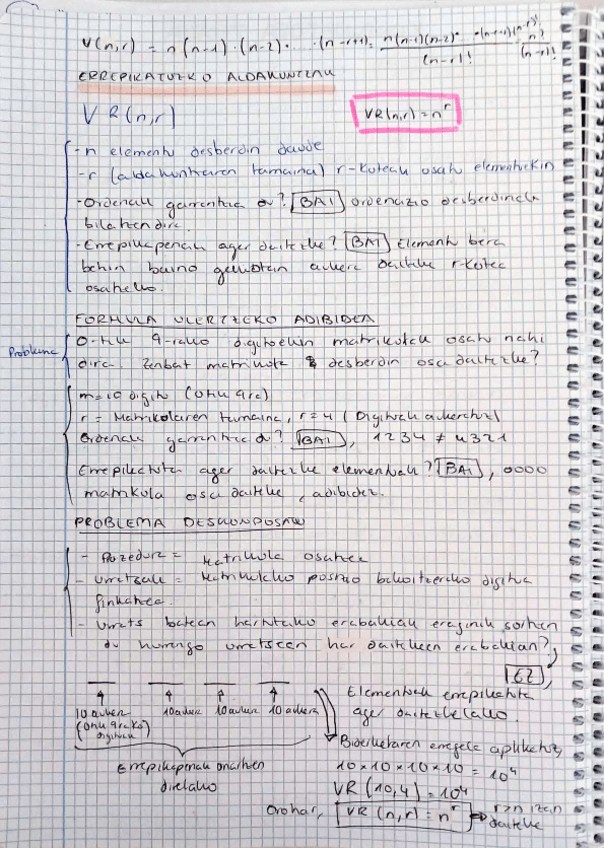 V(n,r) = n(n-1)·(n-2)· ·(n-r+1) = n(n-1)(n-2)· ·(n-r+1)(n-r)! / (n-r)! n! / (n-r)!
ERREPIKATUZKO ALDAKUNTZAK
VR(n,r)
VR(n,r) = n^r
- n elementu desberdin daude
- r (aldakuntzaren tamaina) r-koteak osatu elementuekin
- Ordenak garrantzia du? BAI ordenazio desberdinak
bilatzen dira.
- Errepikapenak ager daitezke? BAI Elementu bera
behin baino gehiagotan aukera daiteke r-kotea
osatzeko.
FORMULA ULERTZEKO ADIBIDEA
Problema
0-tik 9-rako digituekin matrikulak osatu nahi
dira. Zenbat matrikula desberdin osa daitezke?
m=10 digitu (0tik 9ra)
r = Matrikularen tamaina, r=4 (Digituak aukeratu)
Ordenak garrantzia du? BAI, 1234 ≠ 4321
Errepikatuta ager daitezke elementuak? BAI, 0000
matrikula osa daiteke, adibidez.
PROBLEMA DESKONPOSATU
- Prozedura = Matrikula osatzea
- Urratsak = Matrikulako posizio bakoitzerako digitua
finkatzea.
- Urrats batean hartutako erabakiak eraginik sortzen
du hurrengo urratsean har daitekeen erabakian?
EZ,
Elementuak errepikatuta
ager daitezkelako.
10 aukera 10 aukera 10 aukera 10 aukera
(0tik 9rako
digituak)
Errepikapenak onartzen
direlako
Biderketaren erregela aplikatuz,
10×10×10×10 = 10^4
VR(10,4) = 10^4
Orohar, VR(n,r) = n^r → r>n izan
daiteke